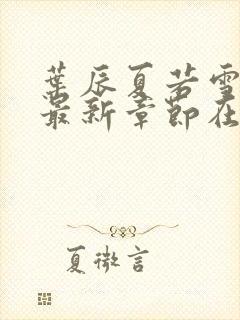 葉辰夏若雪
最新章節在
夏微言